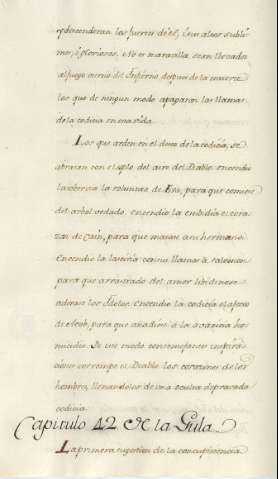 descenderan los fuertes de el, i sus altos subli-
mes, i gloriosos. No es maravilla sean llevados
al fuego eterno del Infierno despues de la muerte
los que de ningun modo apagaron las llamas
de la codicia en esta vida.
Los que arden en el deseo de la codicia, se
abrasan con el soplo del aire del Diablo. encendio
la sobervia la voluntad de Eva, para que comiese
del arbol vedado. encendio la embidia el cora-
zon de Cain, para que matase a su hermano.
Encendio la luxuria con sus llamas a Salomon
para que arrastrado del amor
adorara los Idolos. Encendio la codicia
de Acab, para que añadiese a la avaricia ho-
micidio. De este modo con
corrompe el Diablo los corazones de los
hombres, llenandolos de una oculta depravada
codicia.
Capitulo 42 de la Gula
La primera sugestion de la concupiscencia